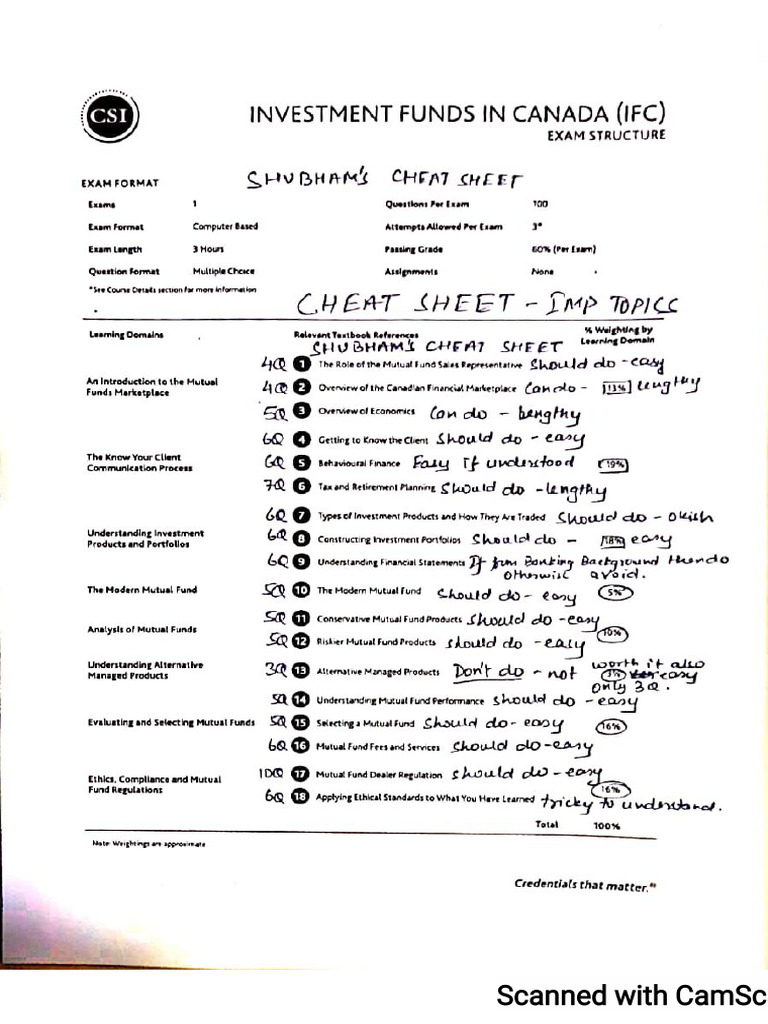 CSI
INVESTMENT FUNDS IN CANADA (IFC)
EXAM STRUCTURE
EXAM FORMAT SHUBHAM'S CHEAT SHEET
Exams 1 Questions Per Exam 100
Exam Format Computer Based Attempts Allowed Per Exam 3*
Exam Length 3 Hours Passing Grade 60% (Per Exam)
Question Format Multiple Choice Assignments None
*See Course Details section for more information
CHEAT SHEET - IMP TOPICS
Learning Domains Relevant Textbook References % Weighting by Learning Domain
SHUBHAM'S CHEAT SHEET
4Q 1 The Role of the Mutual Fund Sales Representative Should do - easy
An Introduction to the Mutual Funds Marketplace 4Q 2 Overview of the Canadian Financial Marketplace Can do - 13% lengthy
5Q 3 Overview of Economics Can do - lengthy
6Q 4 Getting to Know the Client Should do - easy
The Know Your Client Communication Process 6Q 5 Behavioural Finance Easy if understood 19%
7Q 6 Tax and Retirement Planning Should do - lengthy
6Q 7 Types of Investment Products and How They Are Traded Should do - okish
Understanding Investment Products and Portfolios 6Q 8 Constructing Investment Portfolios Should do - 18% easy
6Q 9 Understanding Financial Statements If from Banking Background then do
otherwise avoid.
The Modern Mutual Fund 5Q 10 The Modern Mutual Fund Should do - easy 5%
5Q 11 Conservative Mutual Fund Products Should do - easy
Analysis of Mutual Funds 10%
5Q 12 Riskier Mutual Fund Products should do - easy
Understanding Alternative Managed Products 3Q 13 Alternative Managed Products Don't do - not worth it also 3% easy
only 3Q.
5Q 14 Understanding Mutual Fund Performance should do - easy
Evaluating and Selecting Mutual Funds 5Q 15 Selecting a Mutual Fund Should do - easy 16%
6Q 16 Mutual Fund Fees and Services Should do - easy
Ethics, Compliance and Mutual Fund Regulations 10Q 17 Mutual Fund Dealer Regulation should do - easy
16%
6Q 18 Applying Ethical Standards to What You Have Learned tricky to understand.
Total 100%
Note: Weightings are approximate
Credentials that matter.™
Scanned with CamSc